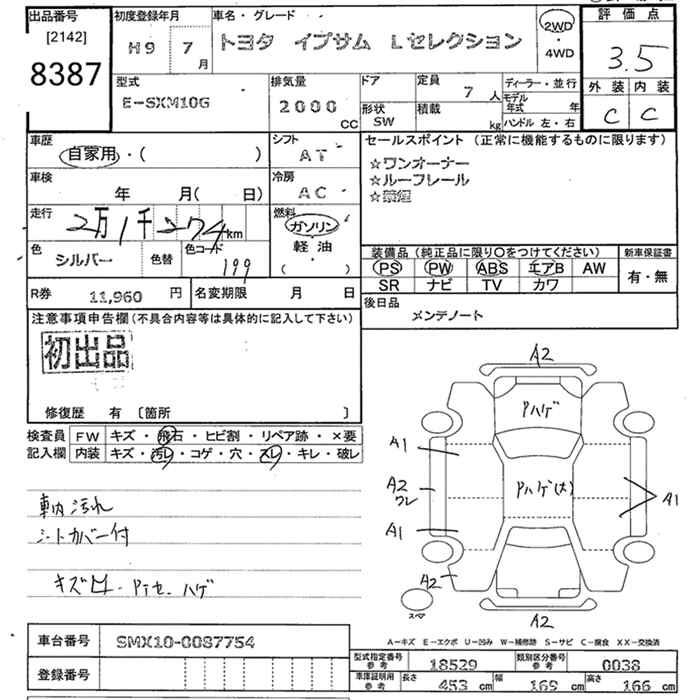 出品番号
[2142]
8387
初度登録年月
H9 7 月
車名・グレード
トヨタ イプサム Lセレクション
2WD
・
4WD
評価点
3.5
外装 内装
C C
型式
E-SXM10G
排気量
2000
CC
ドア
形状
SW
定員
7 人
積載
kg
ディーラー・並行
モデル年式 年
ハンドル 左・右
車歴
自家用・( )
シフト
AT
車検
年 月( 日)
冷房
AC
走行
2万1千274km
燃料
ガソリン
軽油
( ・ )
色
シルバー
色替
色コード
199
R券 11,960 円
名変期限 月 日
セールスポイント (正常に機能するものに限ります)
☆ワンオーナー
☆ルーフレール
☆禁煙
装備品 (純正品に限り○をつけてください)
PS PW ABS エアB AW
SR ナビ TV カワ
新車保証書
有・無
後日品
メンテノート
注意事項申告欄(不具合内容等は具体的に記入して下さい)
初出品
修復歴 有 〔箇所 〕
検査員 FW キズ・飛石・ヒビ割・リペア跡・×要
記入欄 内装 キズ・汚レ・コゲ・穴・スレ・キレ・破レ
車内汚れ
シートカバー付
キズ凹.PTセ.ハゲ
A2
Pハゲ
A1
A2
ワレ
Pハゲ(大)
A1
A1
A2
スペア
A2
車台番号 SMX10-0087754
登録番号
A-キズ E-エクボ U-凹み W-補修跡 S-サビ C-腐食 XX-交換済
型式指定番号
参考
18529
類別区分番号
参考
0038
車庫証明用
参考
長さ 453 cm 幅 169 cm 高さ 166 cm